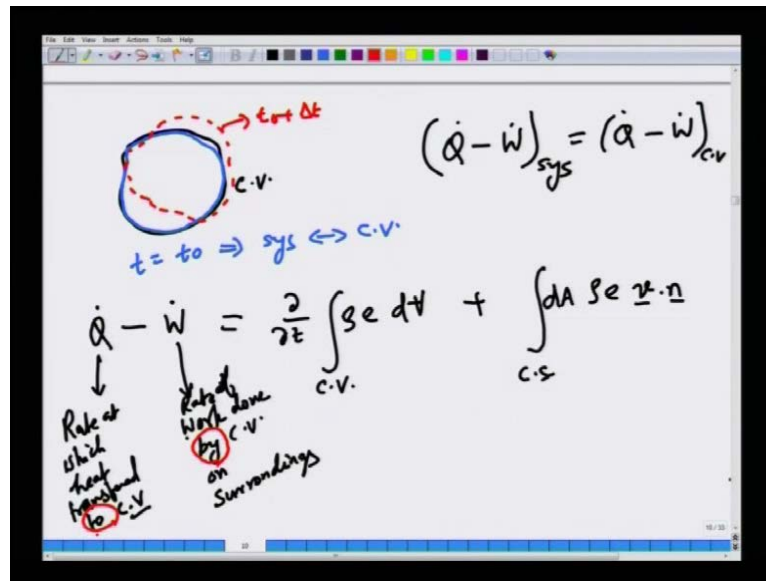 File Edit View Insert Actions Tools Help
t₀+Δt
(Q̇ - Ẇ)sys = (Q̇ - Ẇ)c.v
C.V.
t = t₀ ⇒ sys ↔ C.V.
Q̇ - Ẇ = ∂/∂t ∫ ρe dV + ∫ dA ρe v·n
C.V. C.S
Rate at
which
heat
transferred
to C.V
Rate of
Work done
by C.V.
on
Surroundings
10